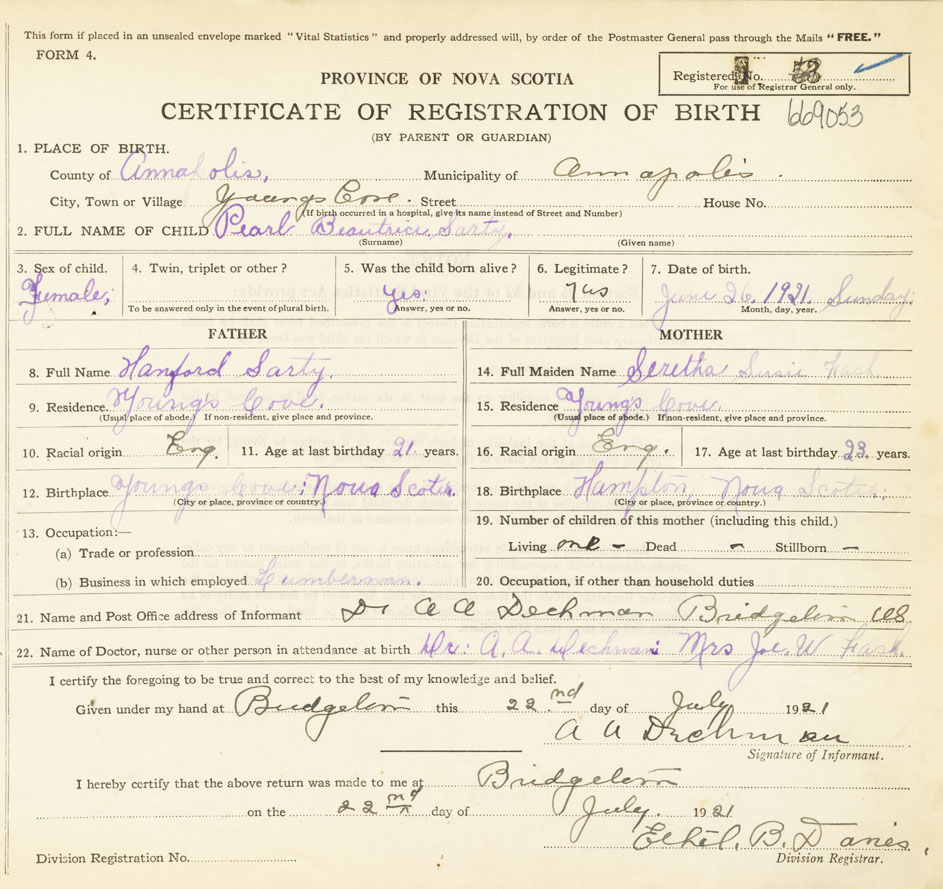 This form if placed in an unsealed envelope marked "Vital Statistics" and properly addressed will, by order of the Postmaster General pass through the Mails "FREE."
FORM 4.
PROVINCE OF NOVA SCOTIA
Registered No.
For use of Registrar General only.
CERTIFICATE OF REGISTRATION OF BIRTH 669053
(BY PARENT OR GUARDIAN)
1. PLACE OF BIRTH.
County of Annapolis, Municipality of Annapolis.
City, Town or Village Youngs Cove. Street House No.
(If birth occurred in a hospital, give its name instead of Street and Number)
2. FULL NAME OF CHILD Pearl Beautrice Sarty.
(Surname) (Given name)
3. Sex of child. 4. Twin, triplet or other? 5. Was the child born alive? 6. Legitimate? 7. Date of birth.
Female; yes. yes June 26, 1921. Sunday.
To be answered only in the event of plural birth. Answer, yes or no. Answer, yes or no. Month, day, year.
FATHER MOTHER
8. Full Name Hanford Sarty. 14. Full Maiden Name Seretha Susie Fash
9. Residence. Young's Cove. 15. Residence Young's Cove.
(Usual place of abode.) If non-resident, give place and province. (Usual place of abode.) If non-resident, give place and province.
10. Racial origin Eng. 11. Age at last birthday 21 years. 16. Racial origin Eng. 17. Age at last birthday 23. years.
12. Birthplace Youngs Cove; Nova Scotia. 18. Birthplace Hampton, Nova Scotia,
(City or place, province or country.) (City or place, province or country.)
13. Occupation:— 19. Number of children of this mother (including this child.)
(a) Trade or profession Living one – Dead – Stillborn –
(b) Business in which employed Lumberman. 20. Occupation, if other than household duties
21. Name and Post Office address of Informant Dr A A Dechman Bridgetown NS
22. Name of Doctor, nurse or other person in attendance at birth Dr: A. A. Dechman Mrs Joe. W Fash.
I certify the foregoing to be true and correct to the best of my knowledge and belief.
Given under my hand at Bridgetown this 22nd day of July 1921
A A Dechman
Signature of Informant.
I hereby certify that the above return was made to me at Bridgetown
on the 22nd day of July. 1921
Ethel. B. Davies,
Division Registrar.
Division Registration No.